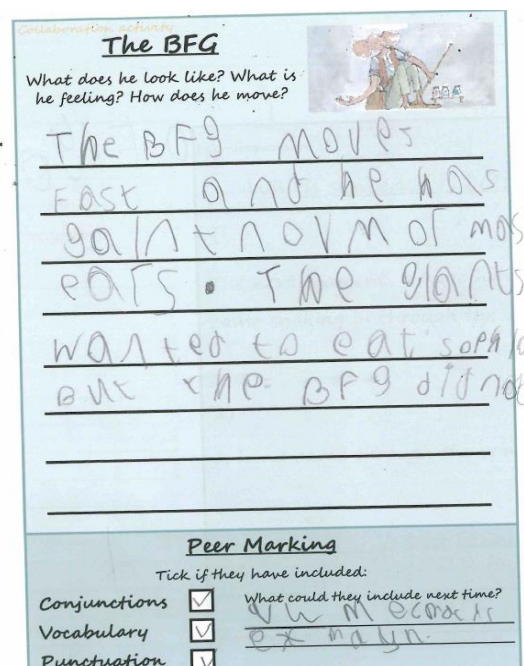 Collaboration activity
The BFG
What does he look like? What is
he feeling? How does he move?
The BFG moves
Fast and he has
gaint novmormos
ears. The giants
wanted to eat sophia
But the BFG did not
Peer Marking
Tick if they have included:
Conjunctions
What could they include next time?
Vocabulary
Punctuation